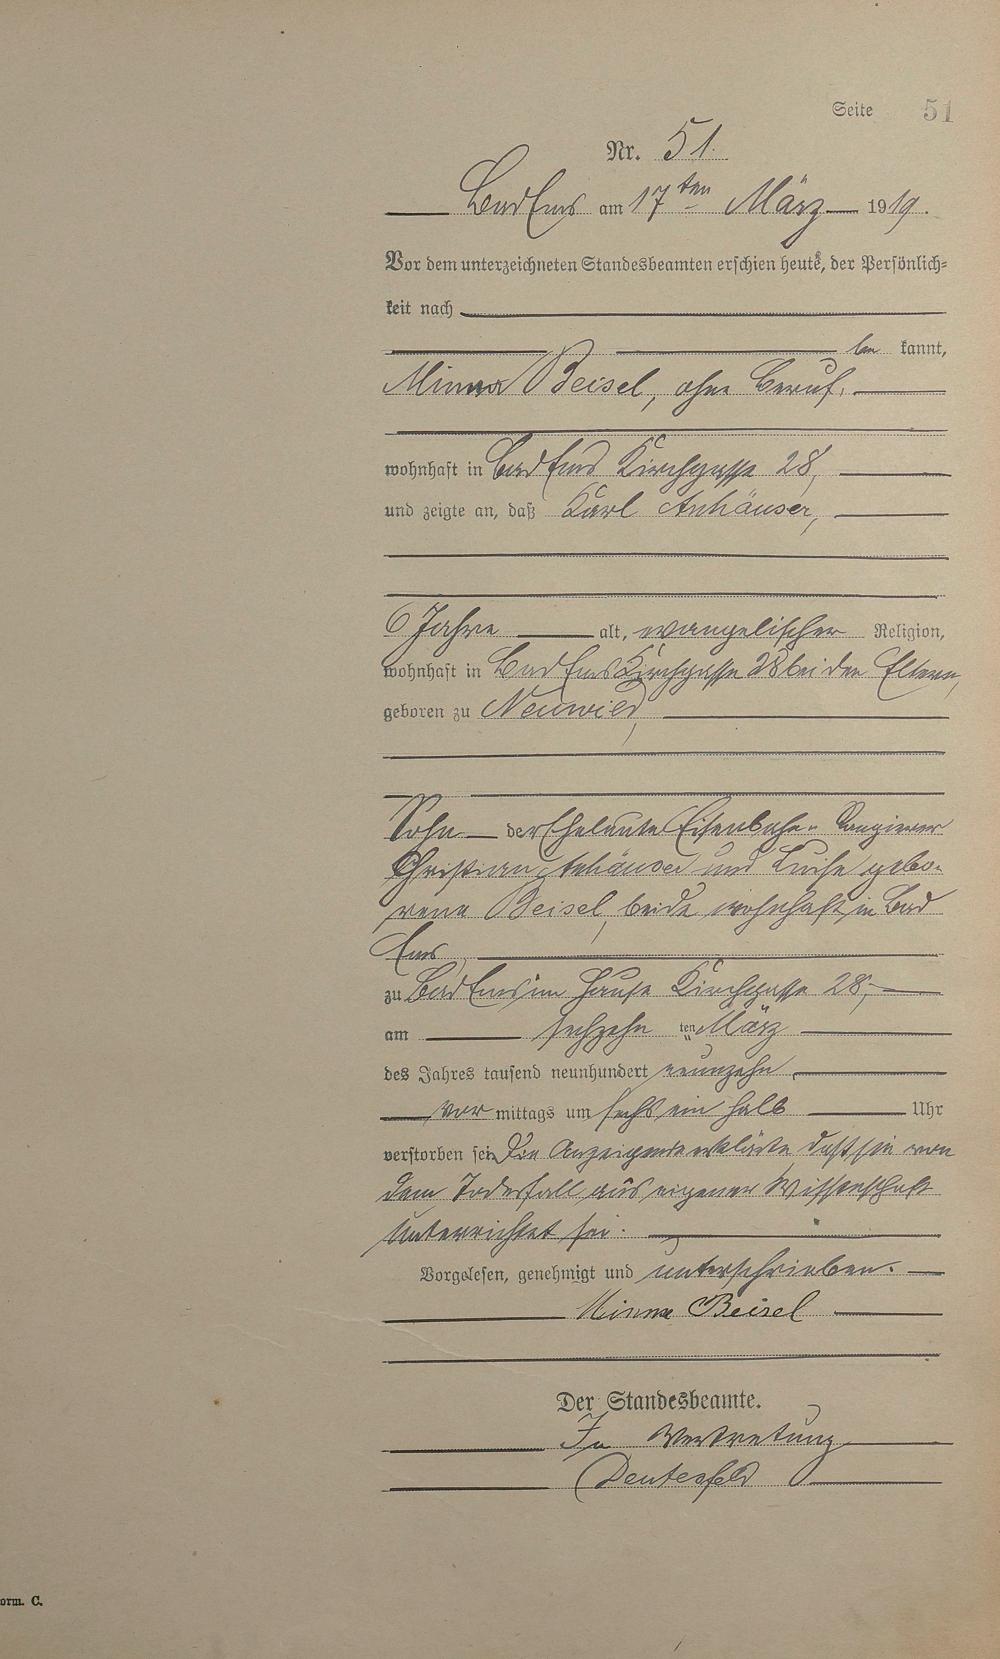 Seite 51
Nr. 51.
Bad Ems am 17ten März 1919.
Vor dem unterzeichneten Standesbeamten erschien heute, der Persönlich-
keit nach
be kannt,
Minna Beisel, ohne Beruf,
wohnhaft in Bad Ems Kirchgasse 28,
und zeigte an, daß Karl Anhäuser,
6 Jahre alt, evangelischer Religion,
wohnhaft in Bad Ems Kirchgasse 28 bei den Eltern,
geboren zu Neuwied,
Sohn der Eheleute Eisenbahn- Rangierer
Christian Anhäuser und Luise gebo-
rene Beisel, beide wohnhaft in Bad
Ems,
zu Bad Ems im Hause Kirchgasse 28,
am sechzehn ten März
des Jahres tausend neunhundert neunzehn
vor mittags um sechs ein halb Uhr
verstorben sei. Die Anzeigende erklärte, daß sie von
dem Todesfall aus eigener Wissenschaft
unterrichtet sei.
Vorgelesen, genehmigt und unterschrieben.
Minna Beisel
Der Standesbeamte.
In Vertretung
Deutesfeld
orm. C.